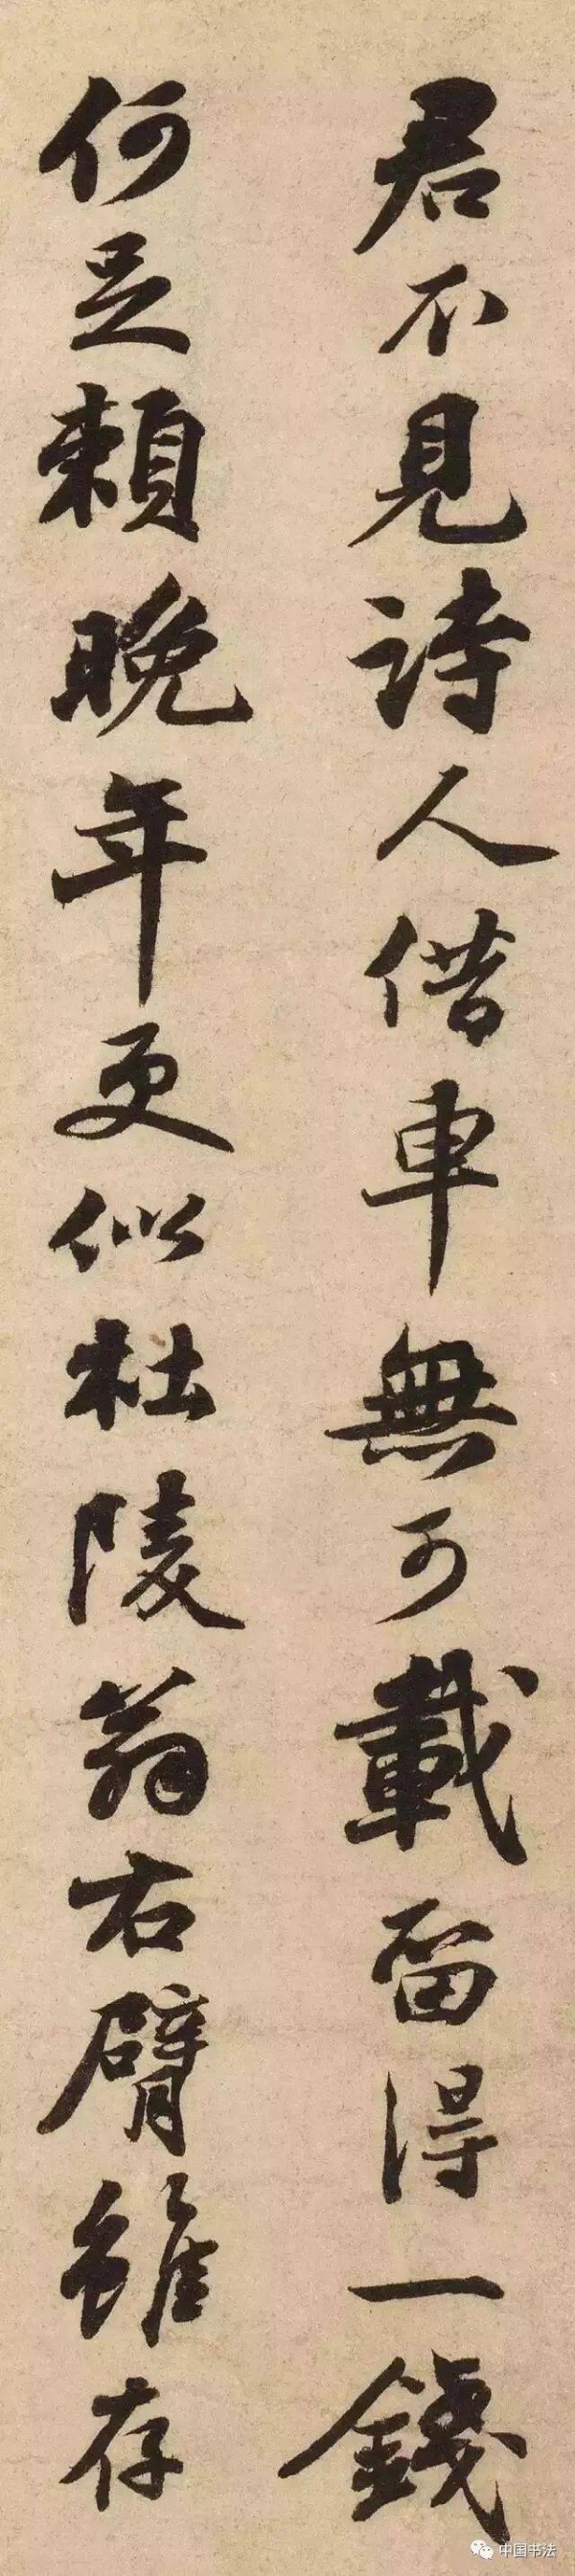 君不見詩人借車無可載留得一錢
何足賴晚年更似杜陵翁右臂雖存
中国书法